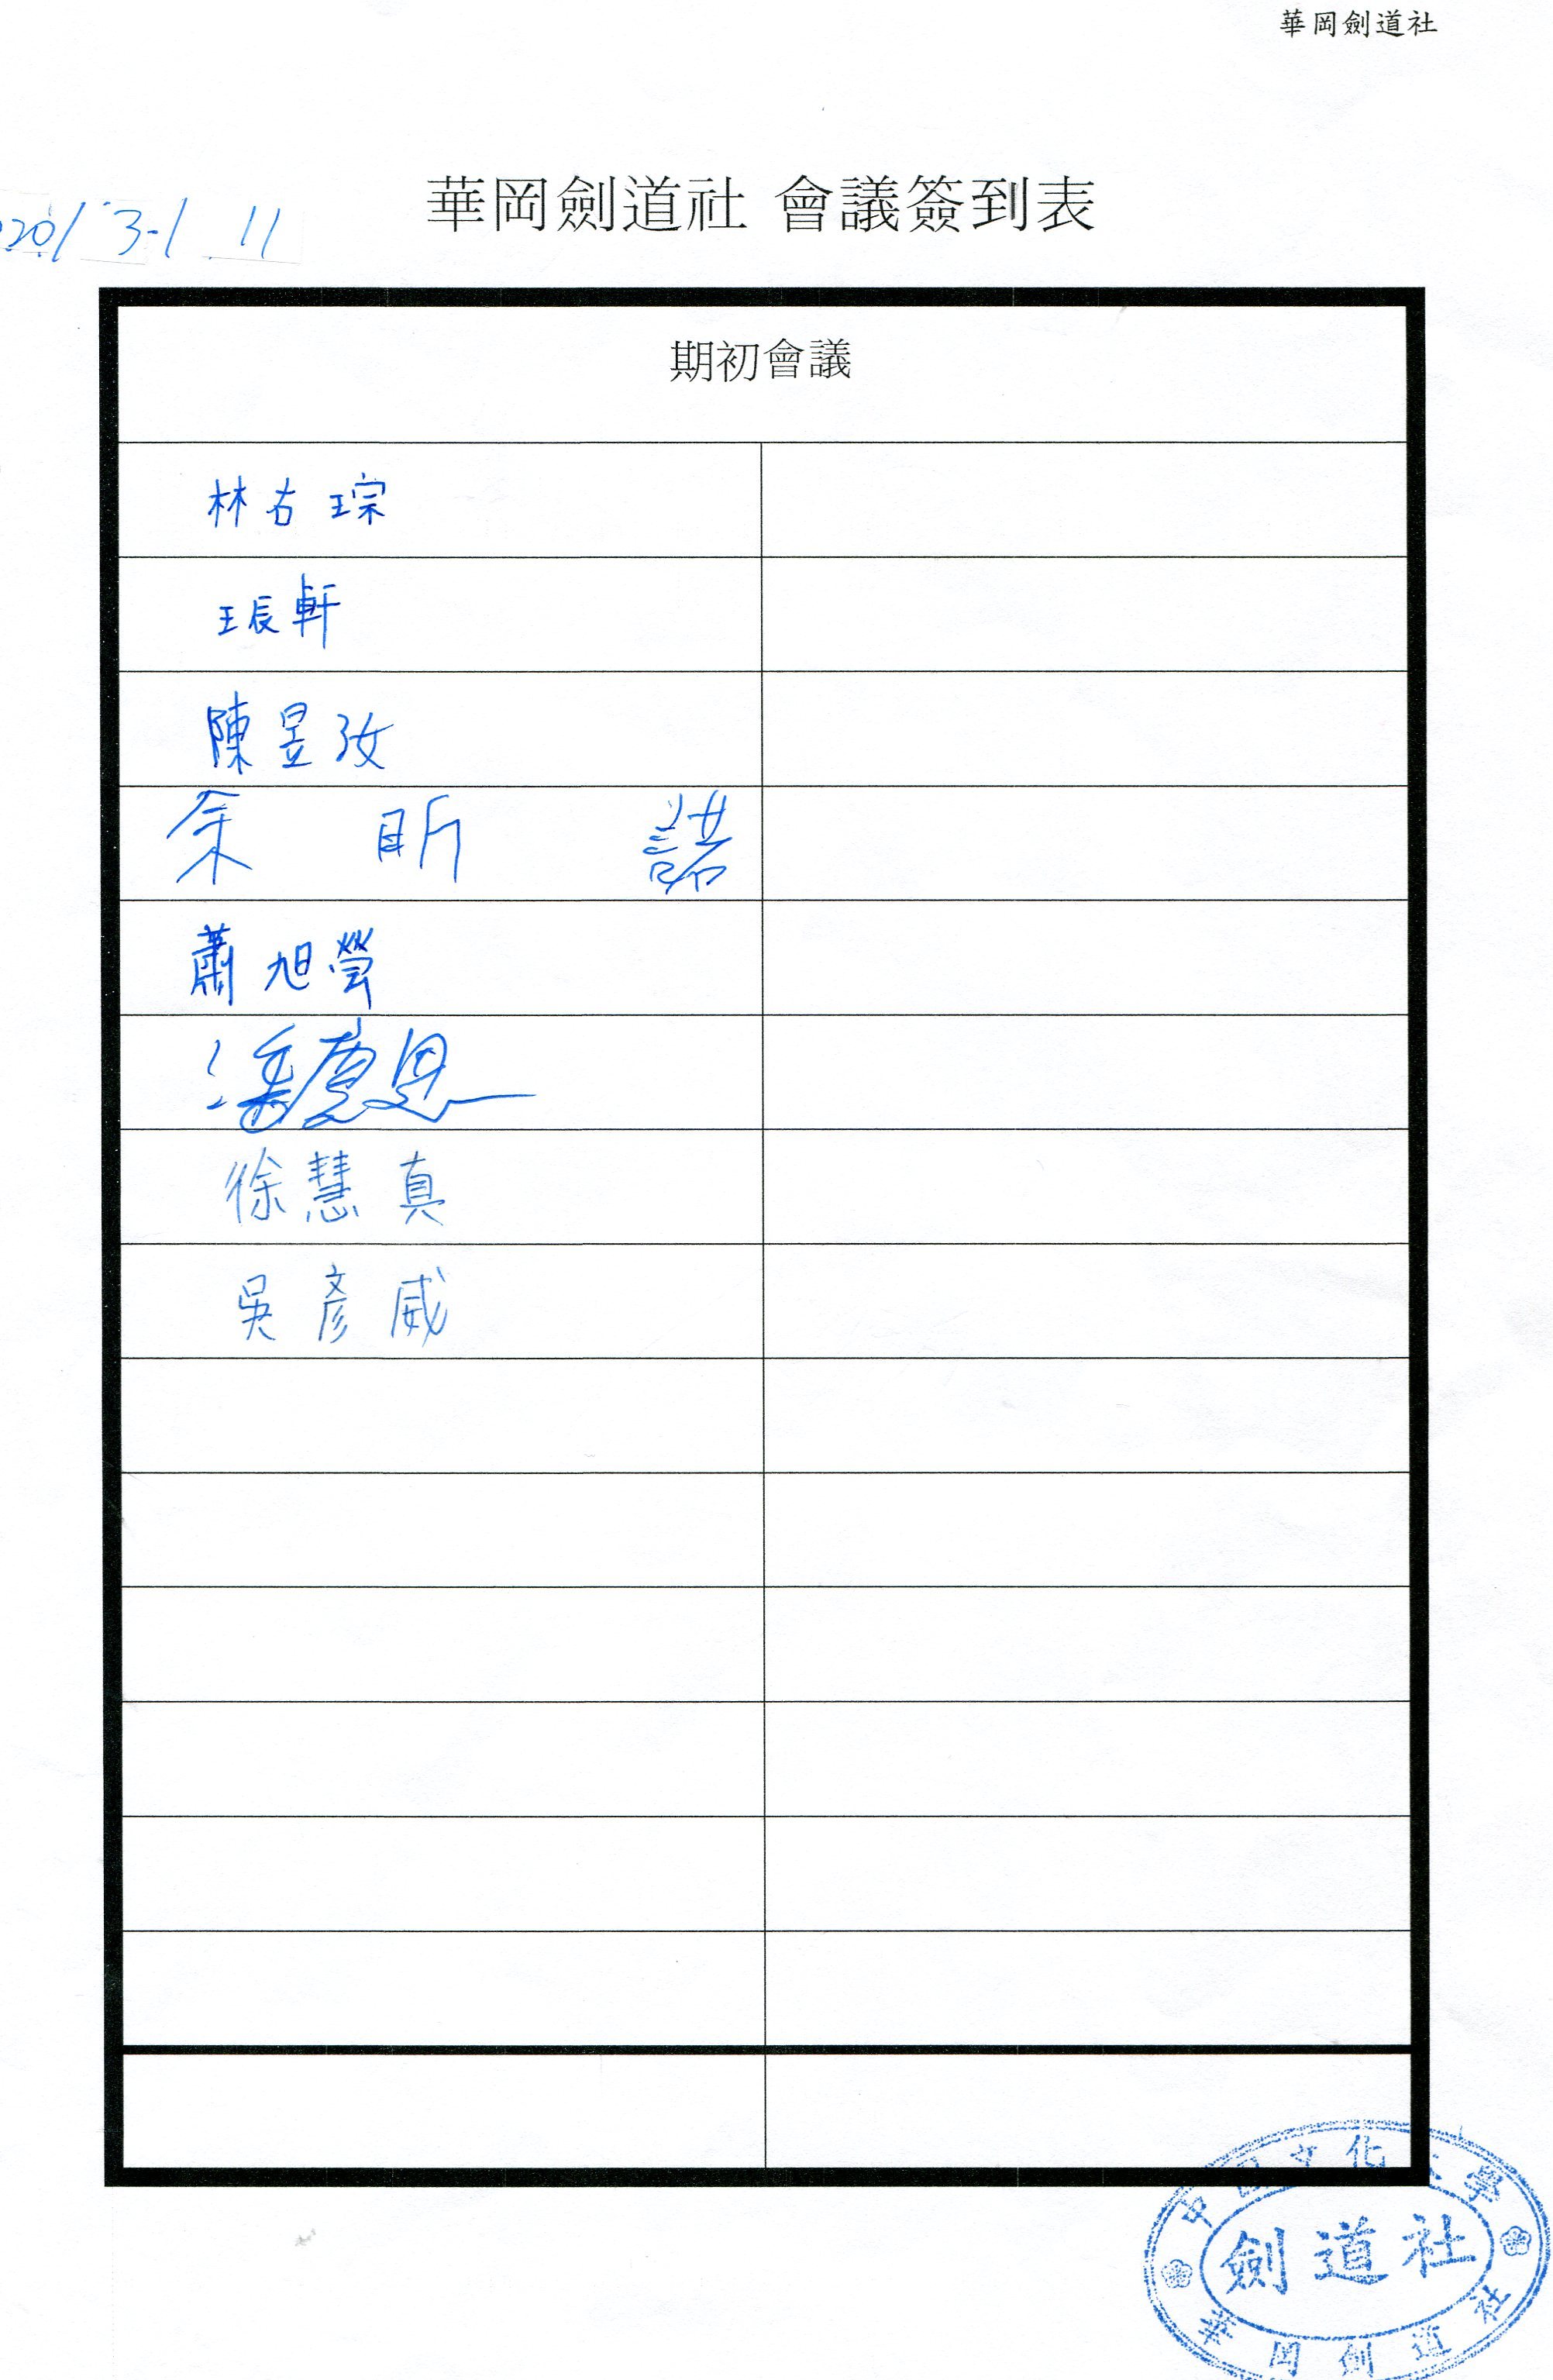 華岡劍道社
華岡劍道社 會議簽到表
020/3/11
期初會議
林右琮
王辰軒
陳昱孜
余昕諾
蕭旭瑩
潘慶恩
徐慧真
吳彥威
中國文化大學
劍道社
華岡劍道社